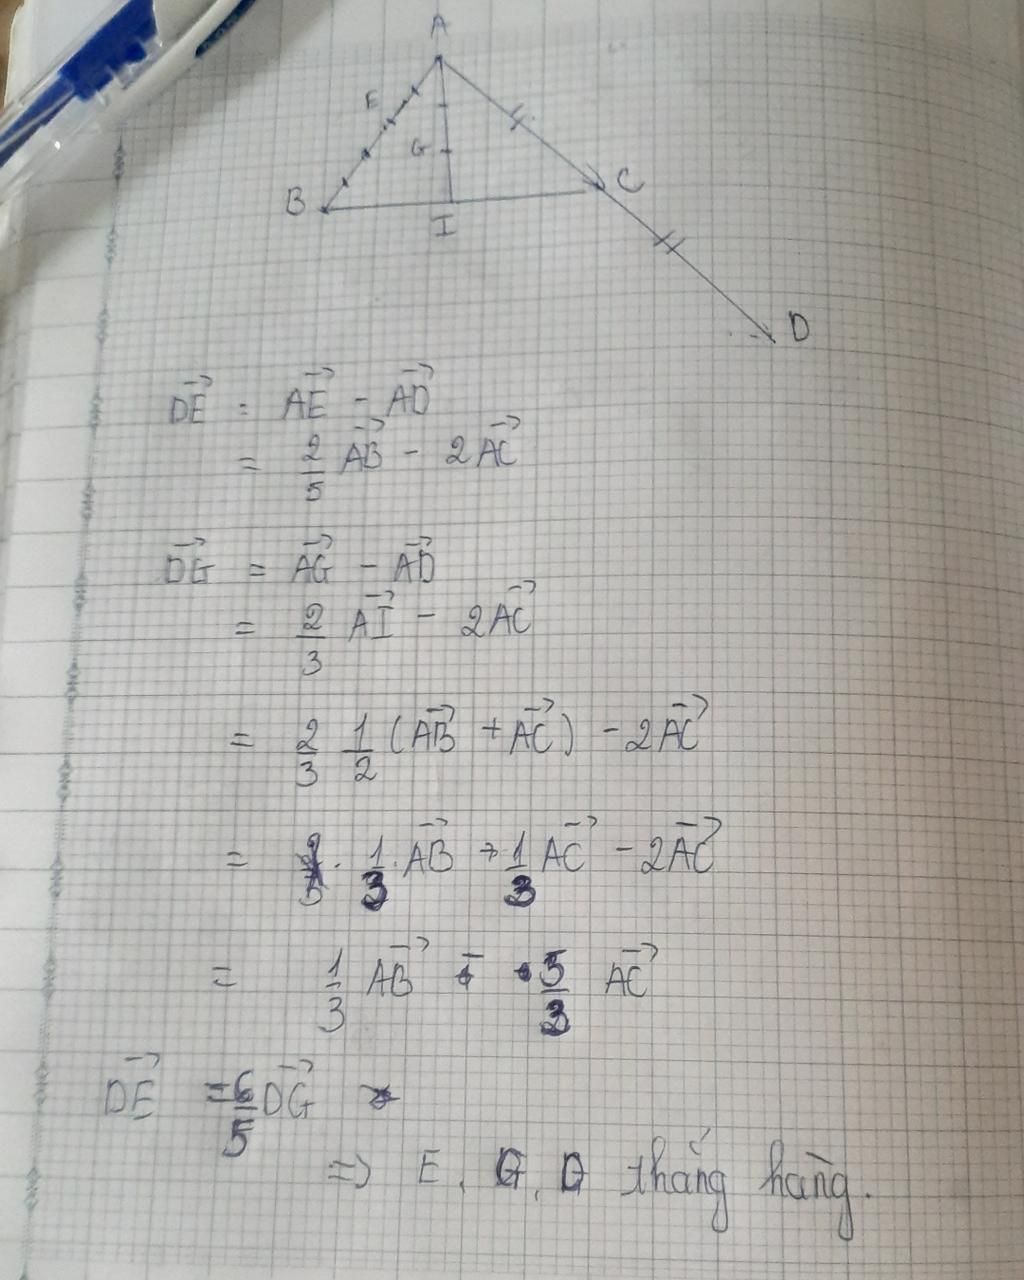 A
E
G
B
C
I
D
\overrightarrow{DE} = \overrightarrow{AE} - \overrightarrow{AD}
= \frac{2}{5} \overrightarrow{AB} - 2\overrightarrow{AC}
\overrightarrow{DG} = \overrightarrow{AG} - \overrightarrow{AD}
= \frac{2}{3} \overrightarrow{AI} - 2\overrightarrow{AC}
= \frac{2}{3} \frac{1}{2} (\overrightarrow{AB} + \overrightarrow{AC}) - 2\overrightarrow{AC}
= \frac{1}{3} . \overrightarrow{AB} + \frac{1}{3} \overrightarrow{AC} - 2\overrightarrow{AC}
= \frac{1}{3} \overrightarrow{AB} - \frac{5}{3} \overrightarrow{AC}
\overrightarrow{DE} = \frac{6}{5} \overrightarrow{DG}
=> E, G, D thẳng hàng.